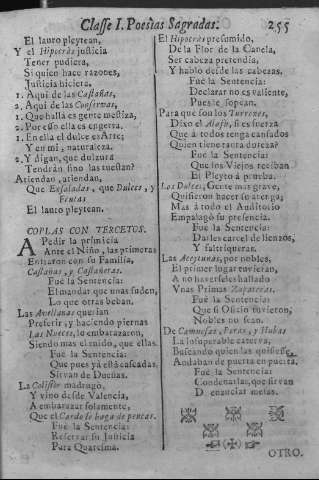 Classe I. Poesias Sagradas. 255
El lauro pleytean,
Y el Hipocràs justicia
Tener pudiera,
Si quien hace razones,
Justicia hiciera.
1. Aqui de las Castañas,
2. Aqui de las Conservas,
1. Que hallà es gente mestiza,
2. Por esso ella es engerta.
1. En ella el dulce es Arte;
Y en mi, naturaleza.
2. Y digan, que dulzura
Tendràn sino las tuestan?
Atiendan, atiendan,
Que Ensaladas, que Dulces, y
Frutas
El lauro pleytean.
COPLAS CON TERCETOS.
A Pedir la primicia
Ante el Niño, las primeras
Entraron con su Familia,
Castañas, y Castañeras.
Fuè la Sentencia:
El mandar que unas suden,
Lo que otras beban.
Las Avellanas querian
Preferir, y haciendo piernas
Las Nueces, lo embarazaron,
Siendo mas el ruido, que ellas.
Fuè la Sentencia:
Que pues yà està cascadas,
Sirvan de Dueñas.
La Coliflor madrugò,
Y vino desde Valencia,
A embarazar solamente,
Que el Cardo se haga de pencar.
Fuè la Sentencia:
Reservar su Justicia
Para Quaresma.
El Hipocràs presumido,
De la Flor de la Canela,
Ser cabeza pretendia,
Y hablò desde las cabezas.
Fuè la Sentencia:
Declarar no es valiente,
Pues le sopean.
Para que son los Turrones,
Dixo el Alaju, si es fuerza
Que à todos tenga cansados
Quien tiene tanta dureza?
Fuè la Sentencia:
Que los Viejos reciban
El Pleyto à prueba.
Las Dulces, Gente mas grave,
Quisieron hacer su arenga;
Mas à todo el Auditorio
Empalagò su presencia.
Fuè la Sentencia:
Darles carcel de lienzos,
Y faltriqueras.
Las Aceytunas, por nobles,
El primer lugar tuvieran,
A no haverseles hallado
Unas Primas Zapateras.
Fuè la Sentencia:
Que si Oficio tuvieron,
Nobles no sean.
De Camuesas, Peras, y Hubas
La insuperable caterva,
Buscando quien las quisiesse,
Andaban de puerta en puerta,
Fuè la Sentencia:
Condenarlas, que sirvan
D enunciar mesas.
OTRO.